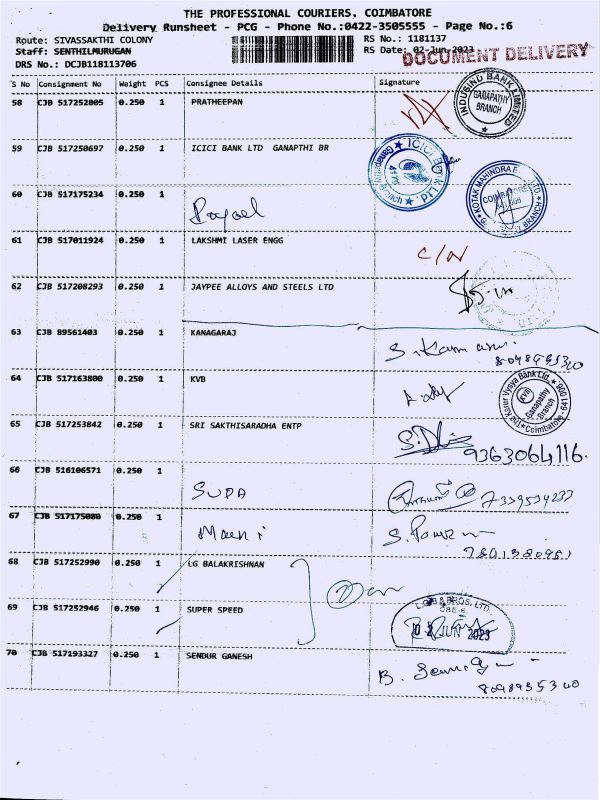 THE PROFESSIONAL COURIERS, COIMBATORE
Delivery Runsheet - PCG - Phone No.:0422-3505555 - Page No.:6
Route: SIVASSAKTHI COLONY RS No.: 1181137
Staff: SENTHILMURUGAN RS Date: 02-Jun-2023
DOCUMENT DELIVERY
DRS No.: DCJB118113706
S No Consignment No Weight PCS Consignee Details Signature
58 CJB 517252805 0.250 1 PRATHEEPAN
INDUSIND BANK LIMITED
GANAPATHY
BRANCH
59 CJB 517250697 0.250 1 ICICI BANK LTD GANAPTHI BR
60 CJB 517175234 0.250 1
KOTAK MAHINDRA
COIMBATORE
BRANCH
61 CJB 517011924 0.250 1 LAKSHMI LASER ENGG
C/N
62 CJB 517208293 0.250 1 JAYPEE ALLOYS AND STEELS LTD
63 CJB 89561403 0.250 1 KANAGARAJ
64 CJB 517163800 0.250 1 KVB
The Karur Vysya Bank Ltd.,
KVB
Ganapathy
Branch
Coimbatore - 641 006
65 CJB 517253842 0.250 1 SRI SAKTHISARADHA ENTP
9363064116.
66 CJB 516106571 0.250 1
SUPA
67 CJB 517175080 0.250 1
Mani
68 CJB 517252990 0.250 1 LG BALAKRISHNAN
69 CJB 517252946 0.250 1 SUPER SPEED
L.G.B & BROS. LTD.
02 JUN 2023
70 CJB 517193327 0.250 1 SENDUR GANESH